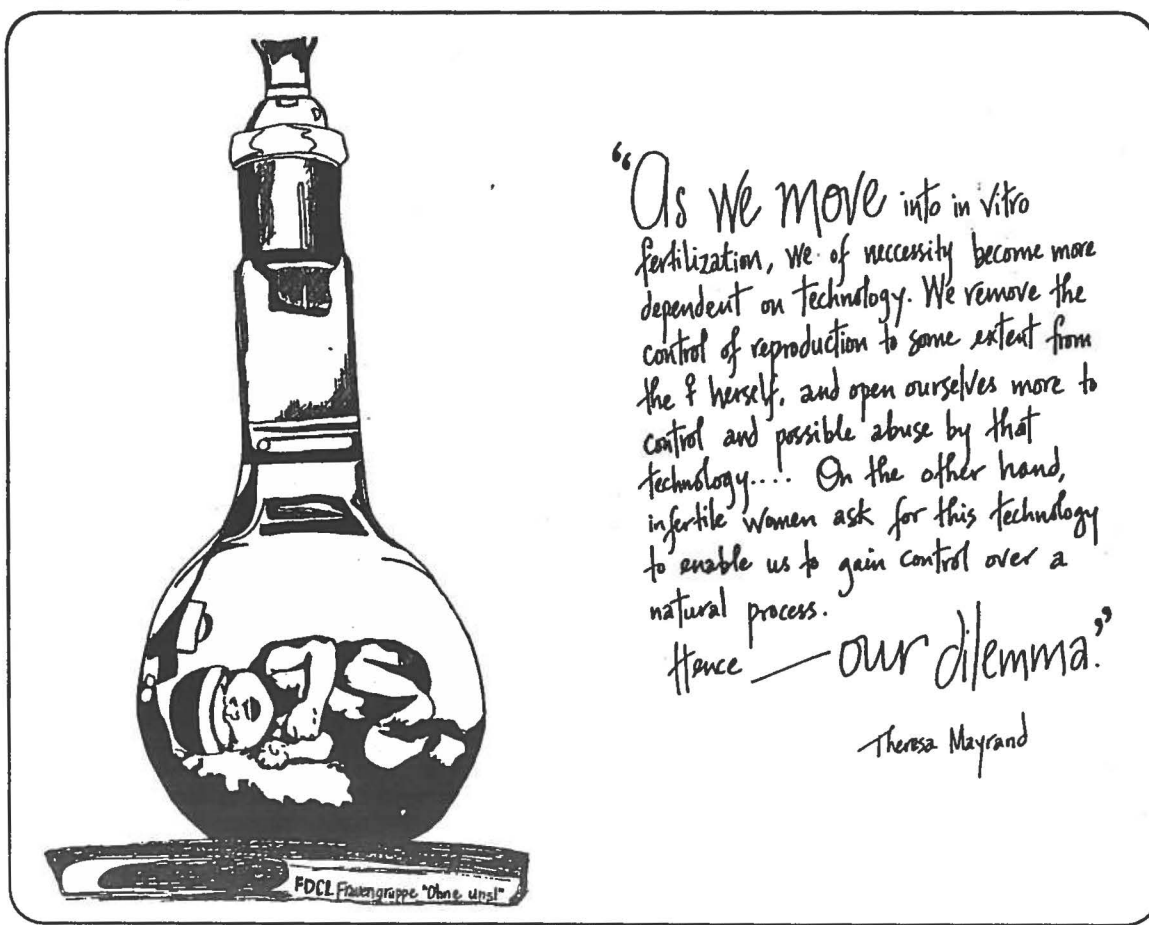 “As we move into in vitro
fertilization, we of neccessity become more
dependent on technology. We remove the
control of reproduction to some extent from
the ♀ herself, and open ourselves more to
control and possible abuse by that
technology.... On the other hand,
infertile women ask for this technology
to enable us to gain control over a
natural process.
Hence — our dilemma.”
Theresa Mayrand
FDCL Frauengruppe "Ohne uns!"